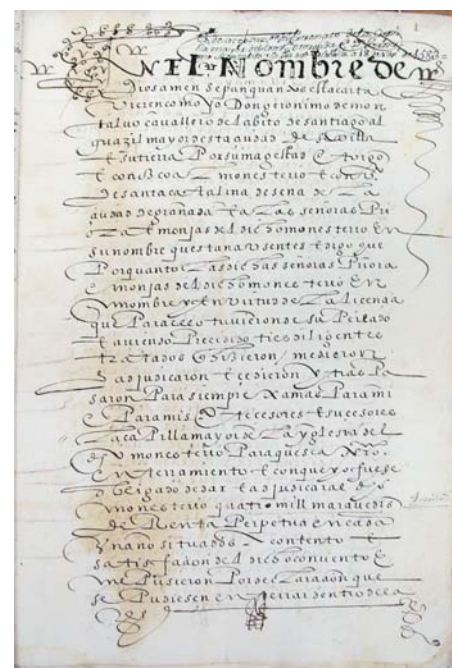 N EL Nombre de
Dios amen sepan quantos esta carta
vieren como yo Don geronimo de mon
talvo cavallero del abito de santiago al
guazil mayor desta ciudad de sevilla
E su tierra Por su magestad E torgo
E conozco a L monesterio E conv
De santa catalina de sena de La
ciudad de granada E a Las señoras Pri
ora E monjas del dicho monesterio En
su nombre questan avsentes E digo que
Porquanto Las dichas señoras Priora
E monjas del dicho monesterio En
nombre y En virtud de La licencia
que Para ello tuvieron de su Perlado
E aviendo Precedido tres diligentes
tratados Me dieron
adjudicaron E cedieron y traspa
saron Para siempre xamas Para mi
E Para mis E sucesores
La ca Pilla mayor de La yglesia del
dho monesterio Para que sea nro
Enterramiento E con que yo fuese
obligado de dar E adjudicar al dho
monesterio quatro mill maravedis
de Renta Perpetua En cada
Un año situados a contento E
satisfacion del dicho convento E
me Pusieron Por de Laracion que
se Pudiesen Enterrar dentro de la